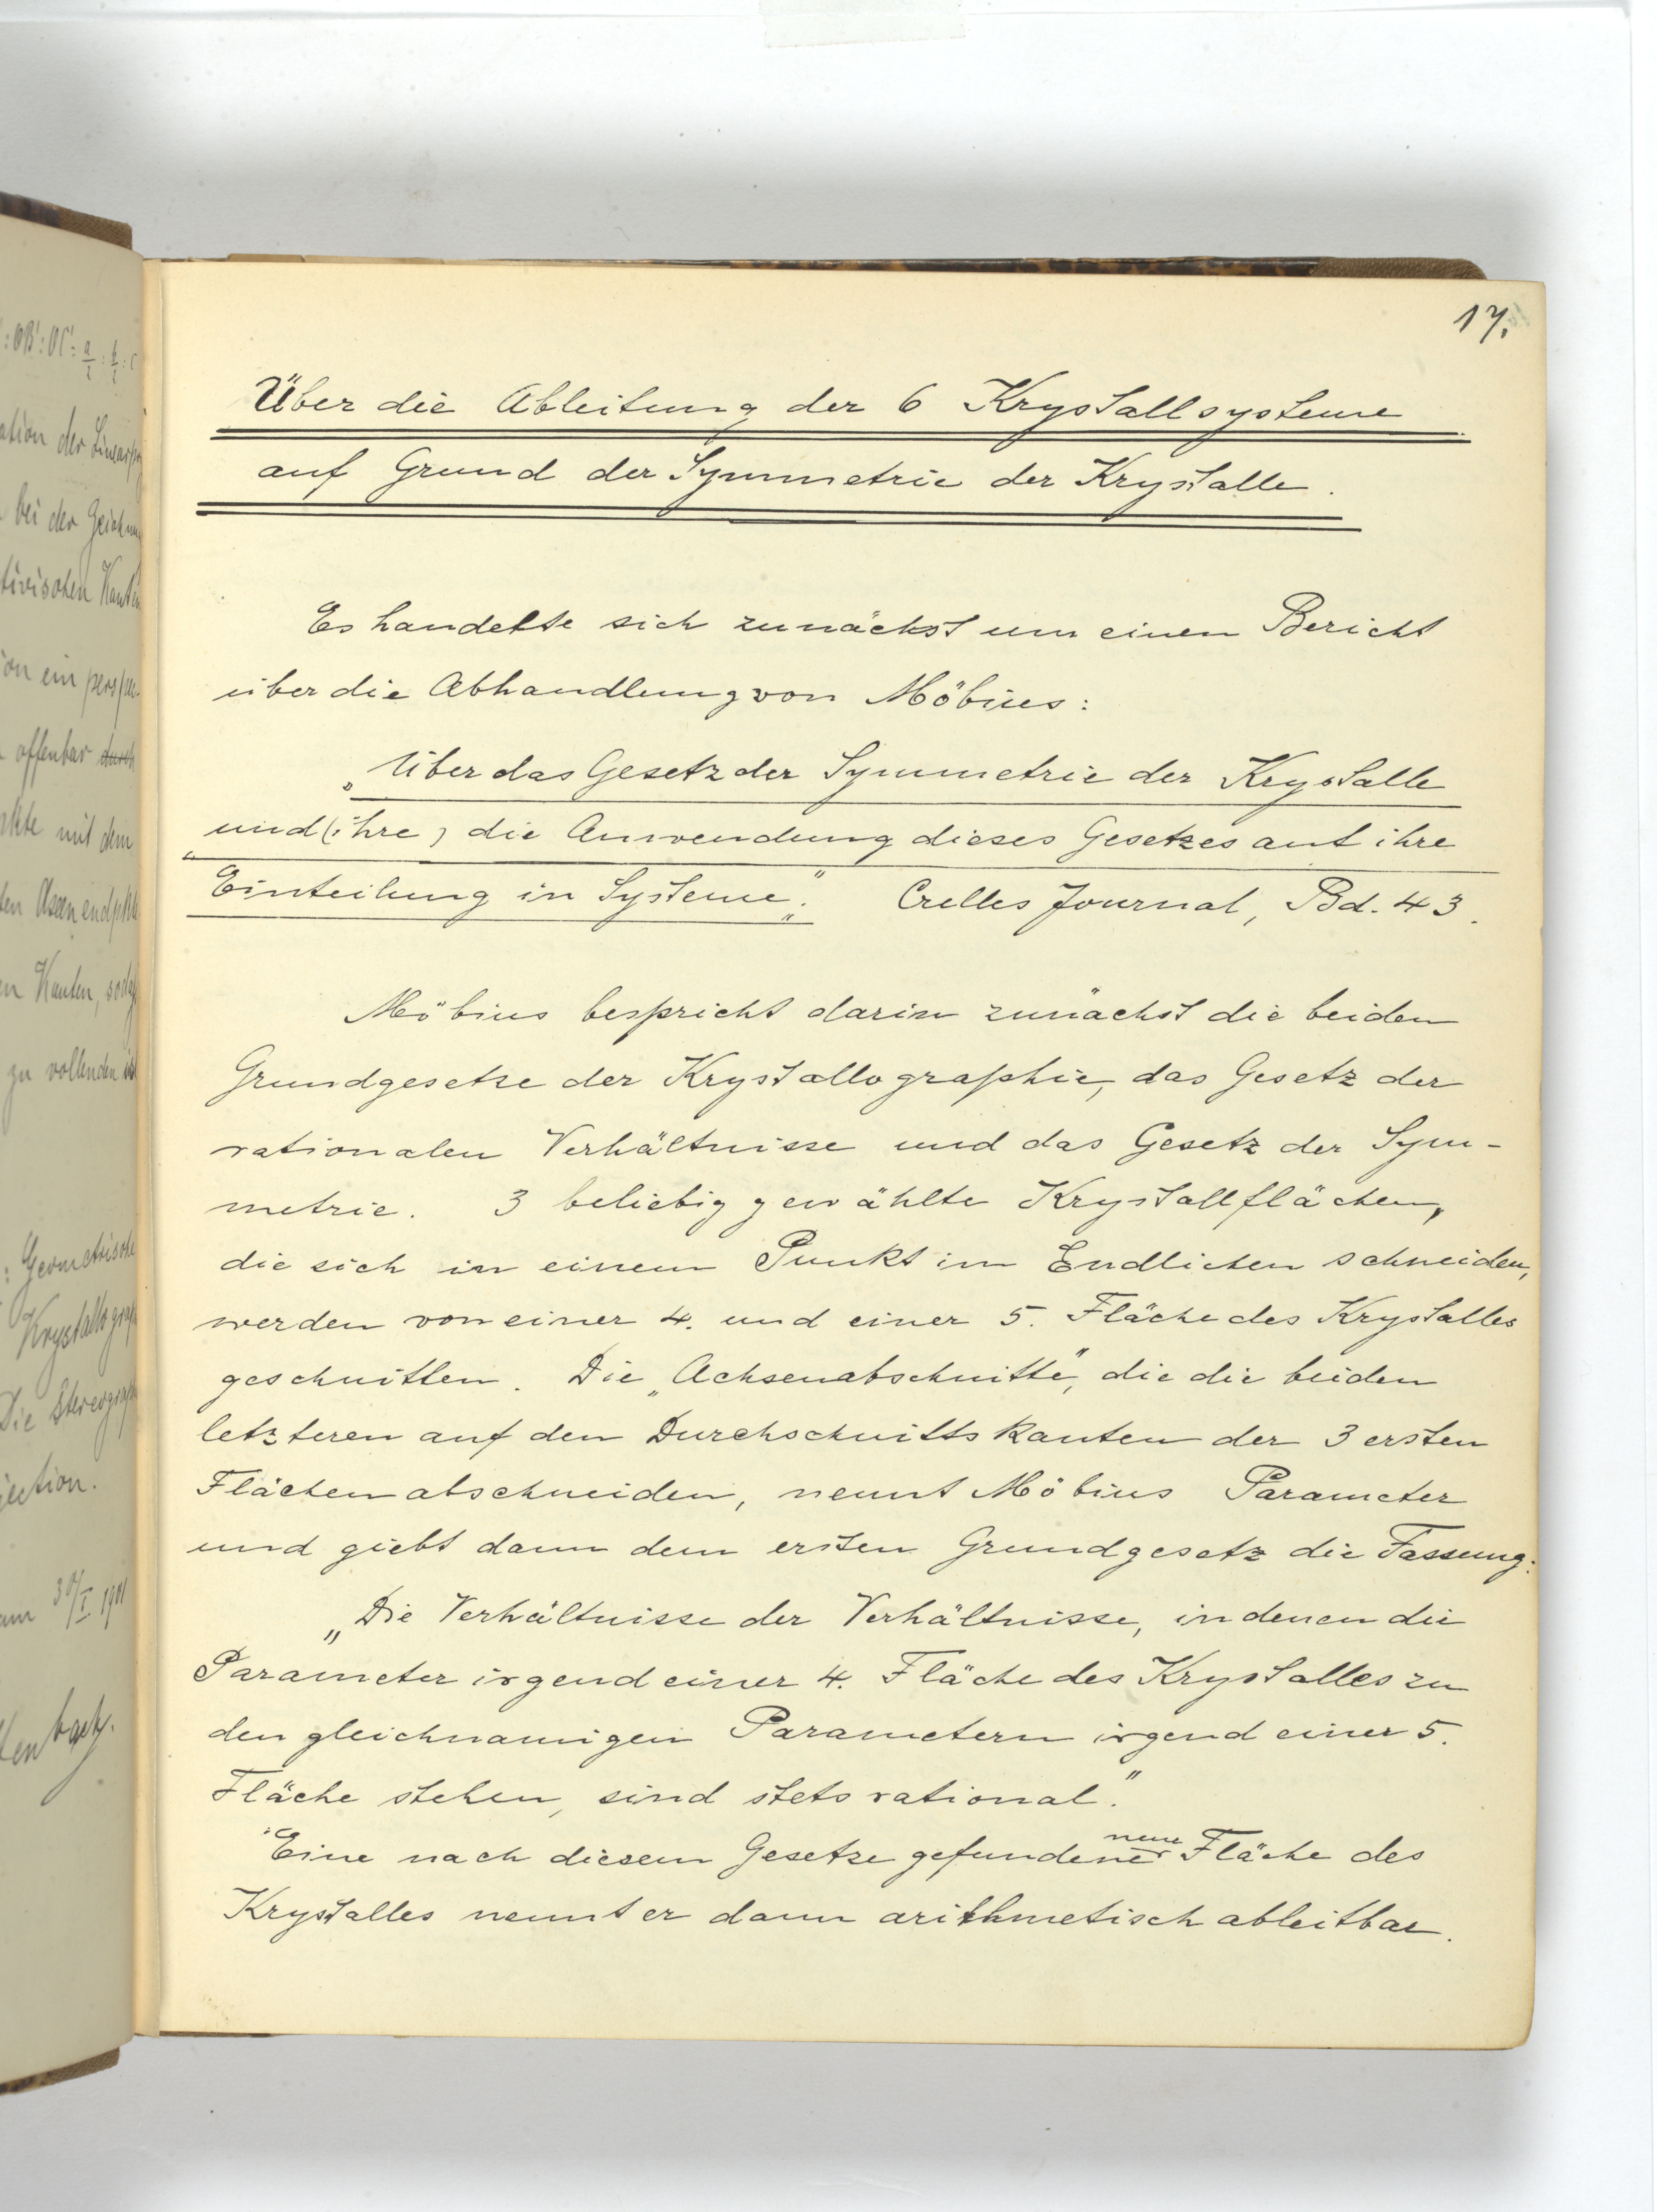 17.
Über die Ableitung der 6 Krystallsysteme
auf Grund der Symmetrie der Krystalle.
Es handelte sich zunächst um einen Bericht
über die Abhandlung von Möbius:
„Über das Gesetz der Symmetrie der Krystalle
und (ihre) die Anwendung dieses Gesetzes auf ihre
Einteilung in Systeme." Crelles Journal, Bd. 43.
Möbius bespricht darin zunächst die beiden
Grundgesetze der Krystallographie, das Gesetz der
rationalen Verhältnisse und das Gesetz der Sym-
metrie. 3 beliebig gewählte Krystallflächen,
die sich in einem Punkt im Endlichen schneiden,
werden von einer 4. und einer 5. Fläche des Krystalles
geschnitten. Die „Achsenabschnitte", die die beiden
letzteren auf den Durchschnittskanten der 3 ersten
Flächen abschneiden, nennt Möbius Parameter
und giebt dann dem ersten Grundgesetz die Fassung:
„Die Verhältnisse der Verhältnisse, in denen die
Parameter irgend einer 4. Fläche des Krystalles zu
den gleichnamigen Parametern irgend einer 5.
Fläche stehen, sind stets rational."
Eine nach diesem Gesetze gefundene neue Fläche des
Krystalles nennt er dann arithmetisch ableitbar.
:OB':OC'= a : b : c
ation der Linearpr
bei der Zeichnun
tivischen Kanten
ion ein perspec
offenbar durch
nkte mit dem
ten Axenendpkt
en Kanten, sodaß
zu vollenden ist
: Geometrische
Krystallograph
Die Stereograph
jection.
am 30/I 1901